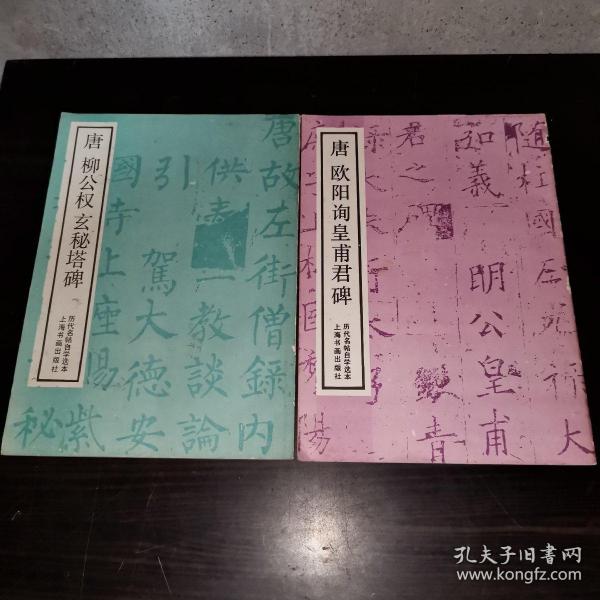 唐 柳公权 玄秘塔碑
历代名帖自学选本
上海书画出版社
唐故左街僧録内
供奉
一教談論
引
駕大德安
國寺上座賜紫
秘
唐 欧阳询皇甫君碑
历代名帖自学选本
上海书画出版社
随柱國
如義
明公皇甫
君之
青
大
孔夫子旧书网
www.kongfz.com